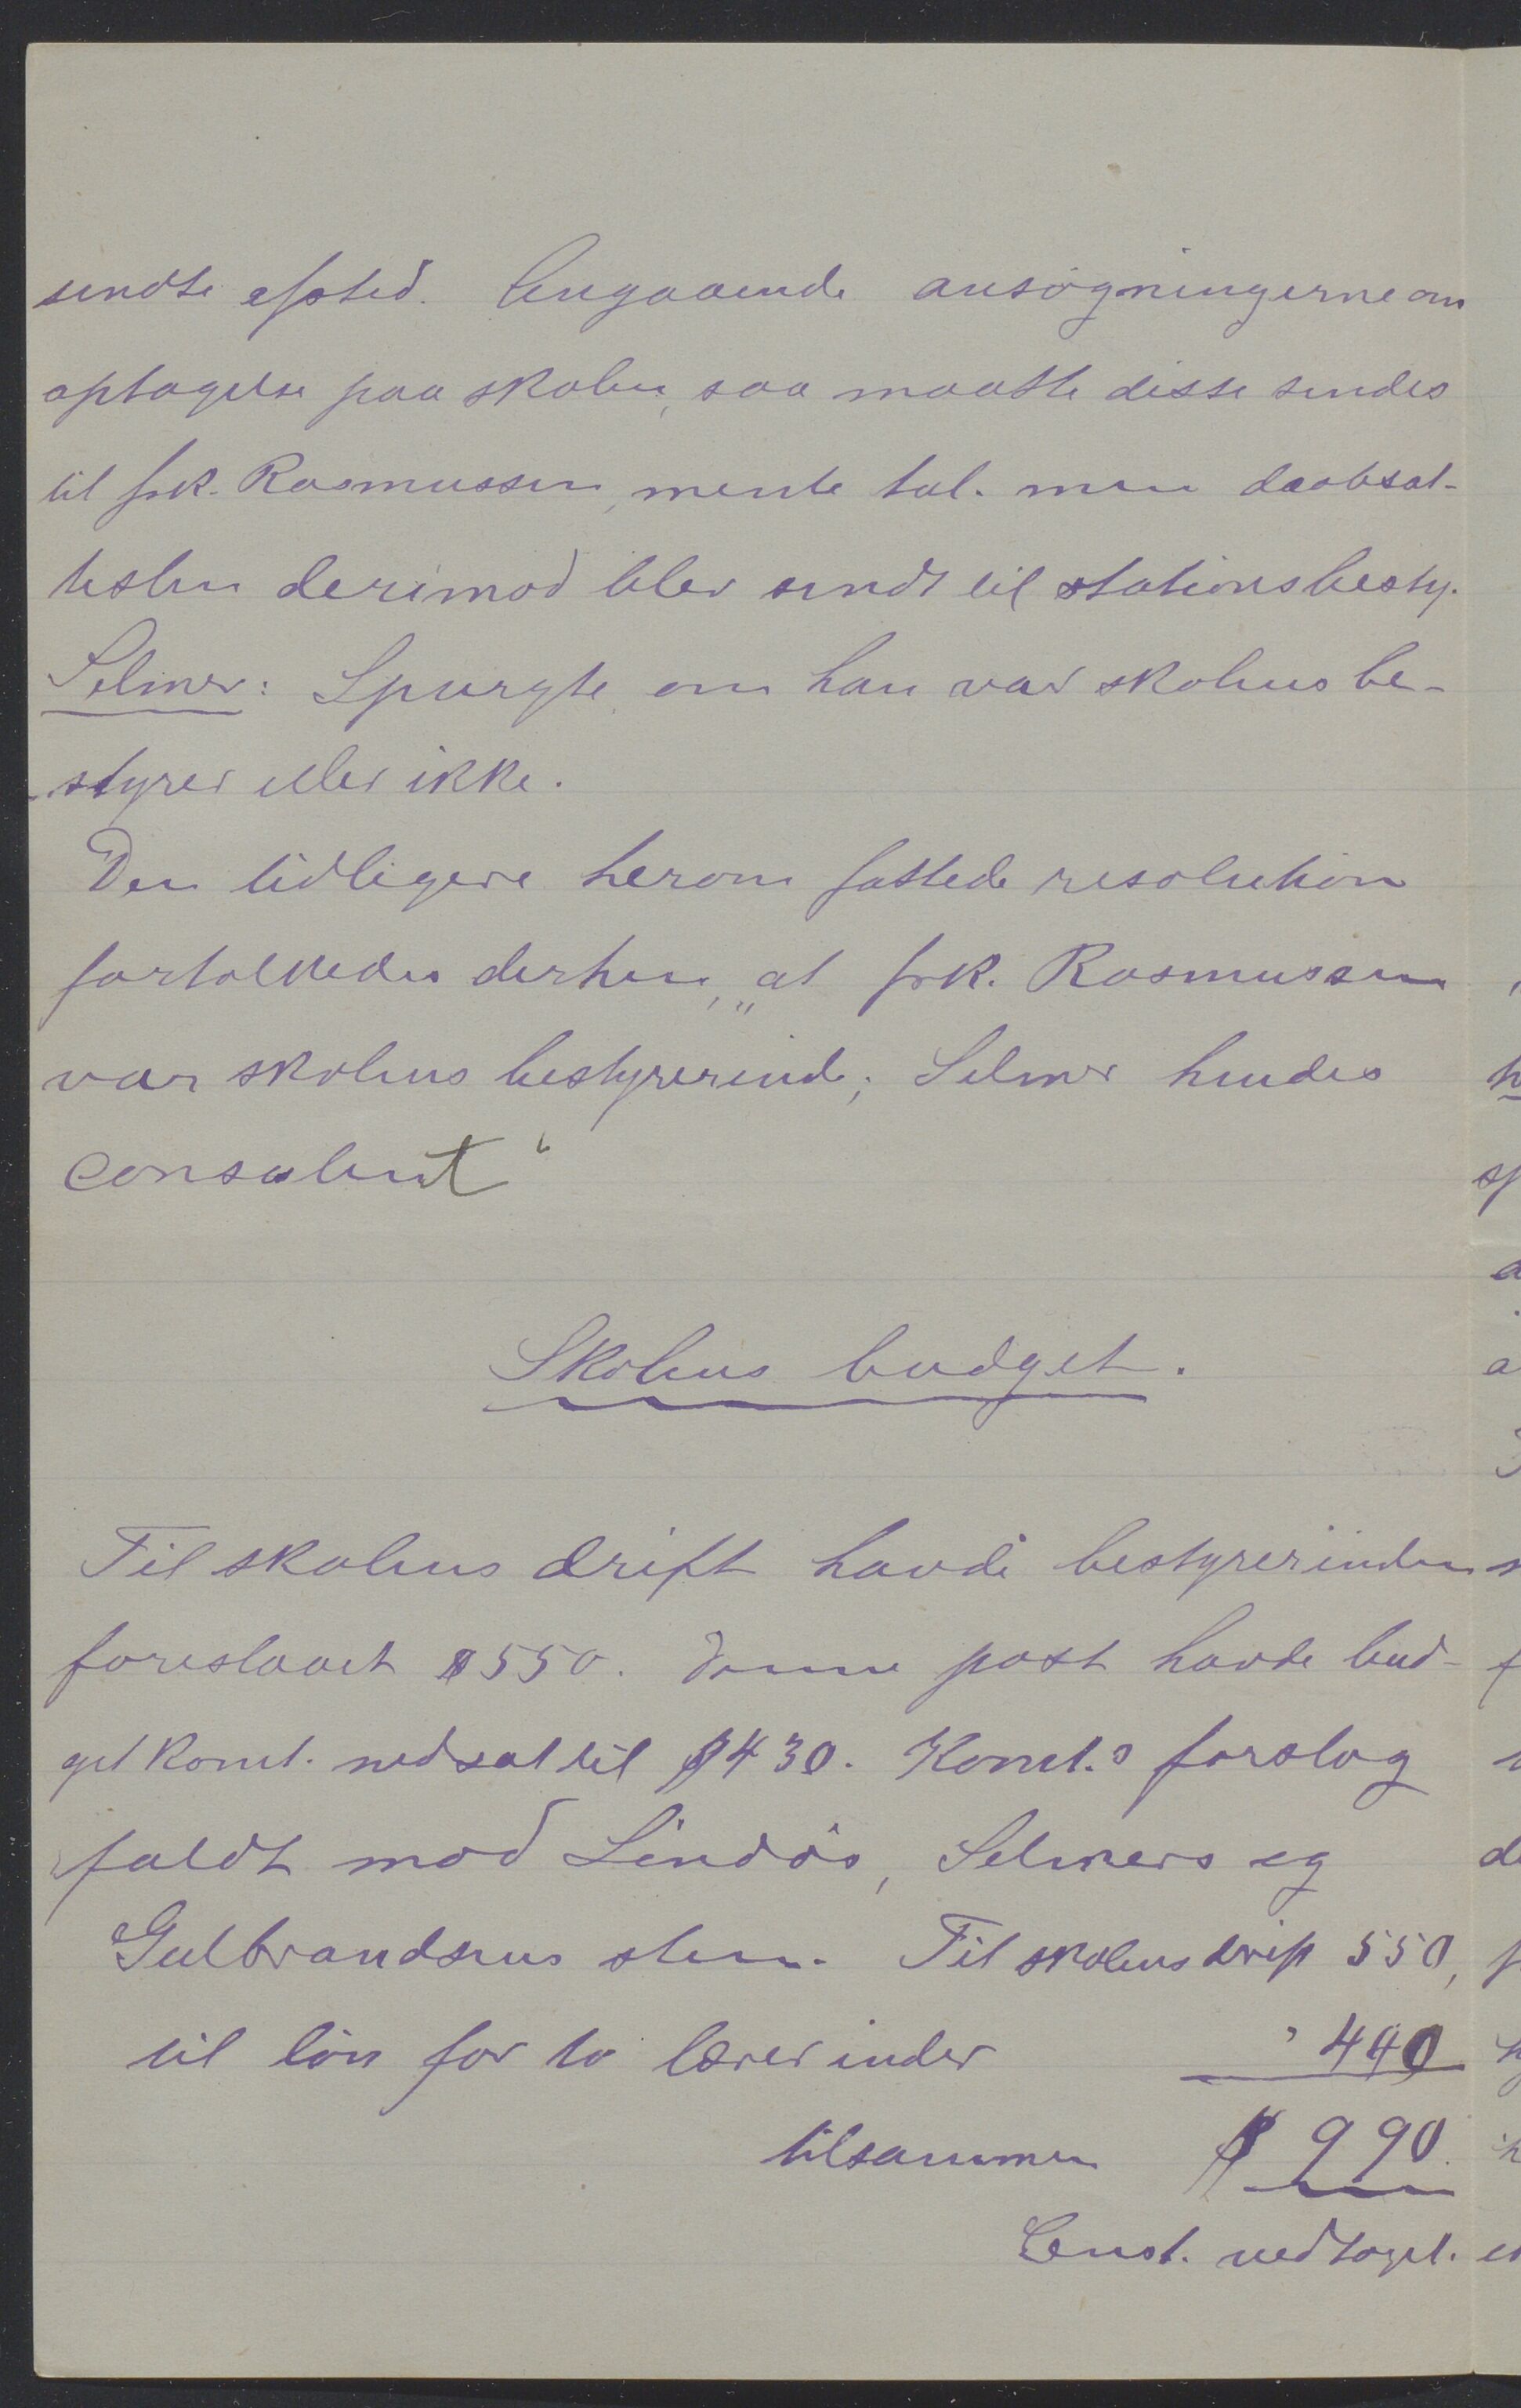 sendte afsted. Angaaende ansøgningerne om
optagelse paa skolen, saa maatte disse sendes
til frk. Rasmussen, mente tal. men daabsat-
testen derimod blev sendt til stationsbesty.
Selmer: Spurgte om han var skolens be-
styrer eller ikke.
Den tidligere herom fattede resolution
fortolkedes derhen, „at frk. Rasmussen
var skolens bestyrerinde; Selmer hendes
consulent“
Skolens budget.
Til skolens drift havde bestyrerinden
foreslaaet $550. Denne post havde bud-
get komt. nedsat til $430. Komt.s forslag
faldt mod Lindøs, Selmers og
Gulbrandsens stem. Til skolens drift 550,
til løn for to lærerinder " 440
tilsammen $ 990.
Enst. vedtaget.